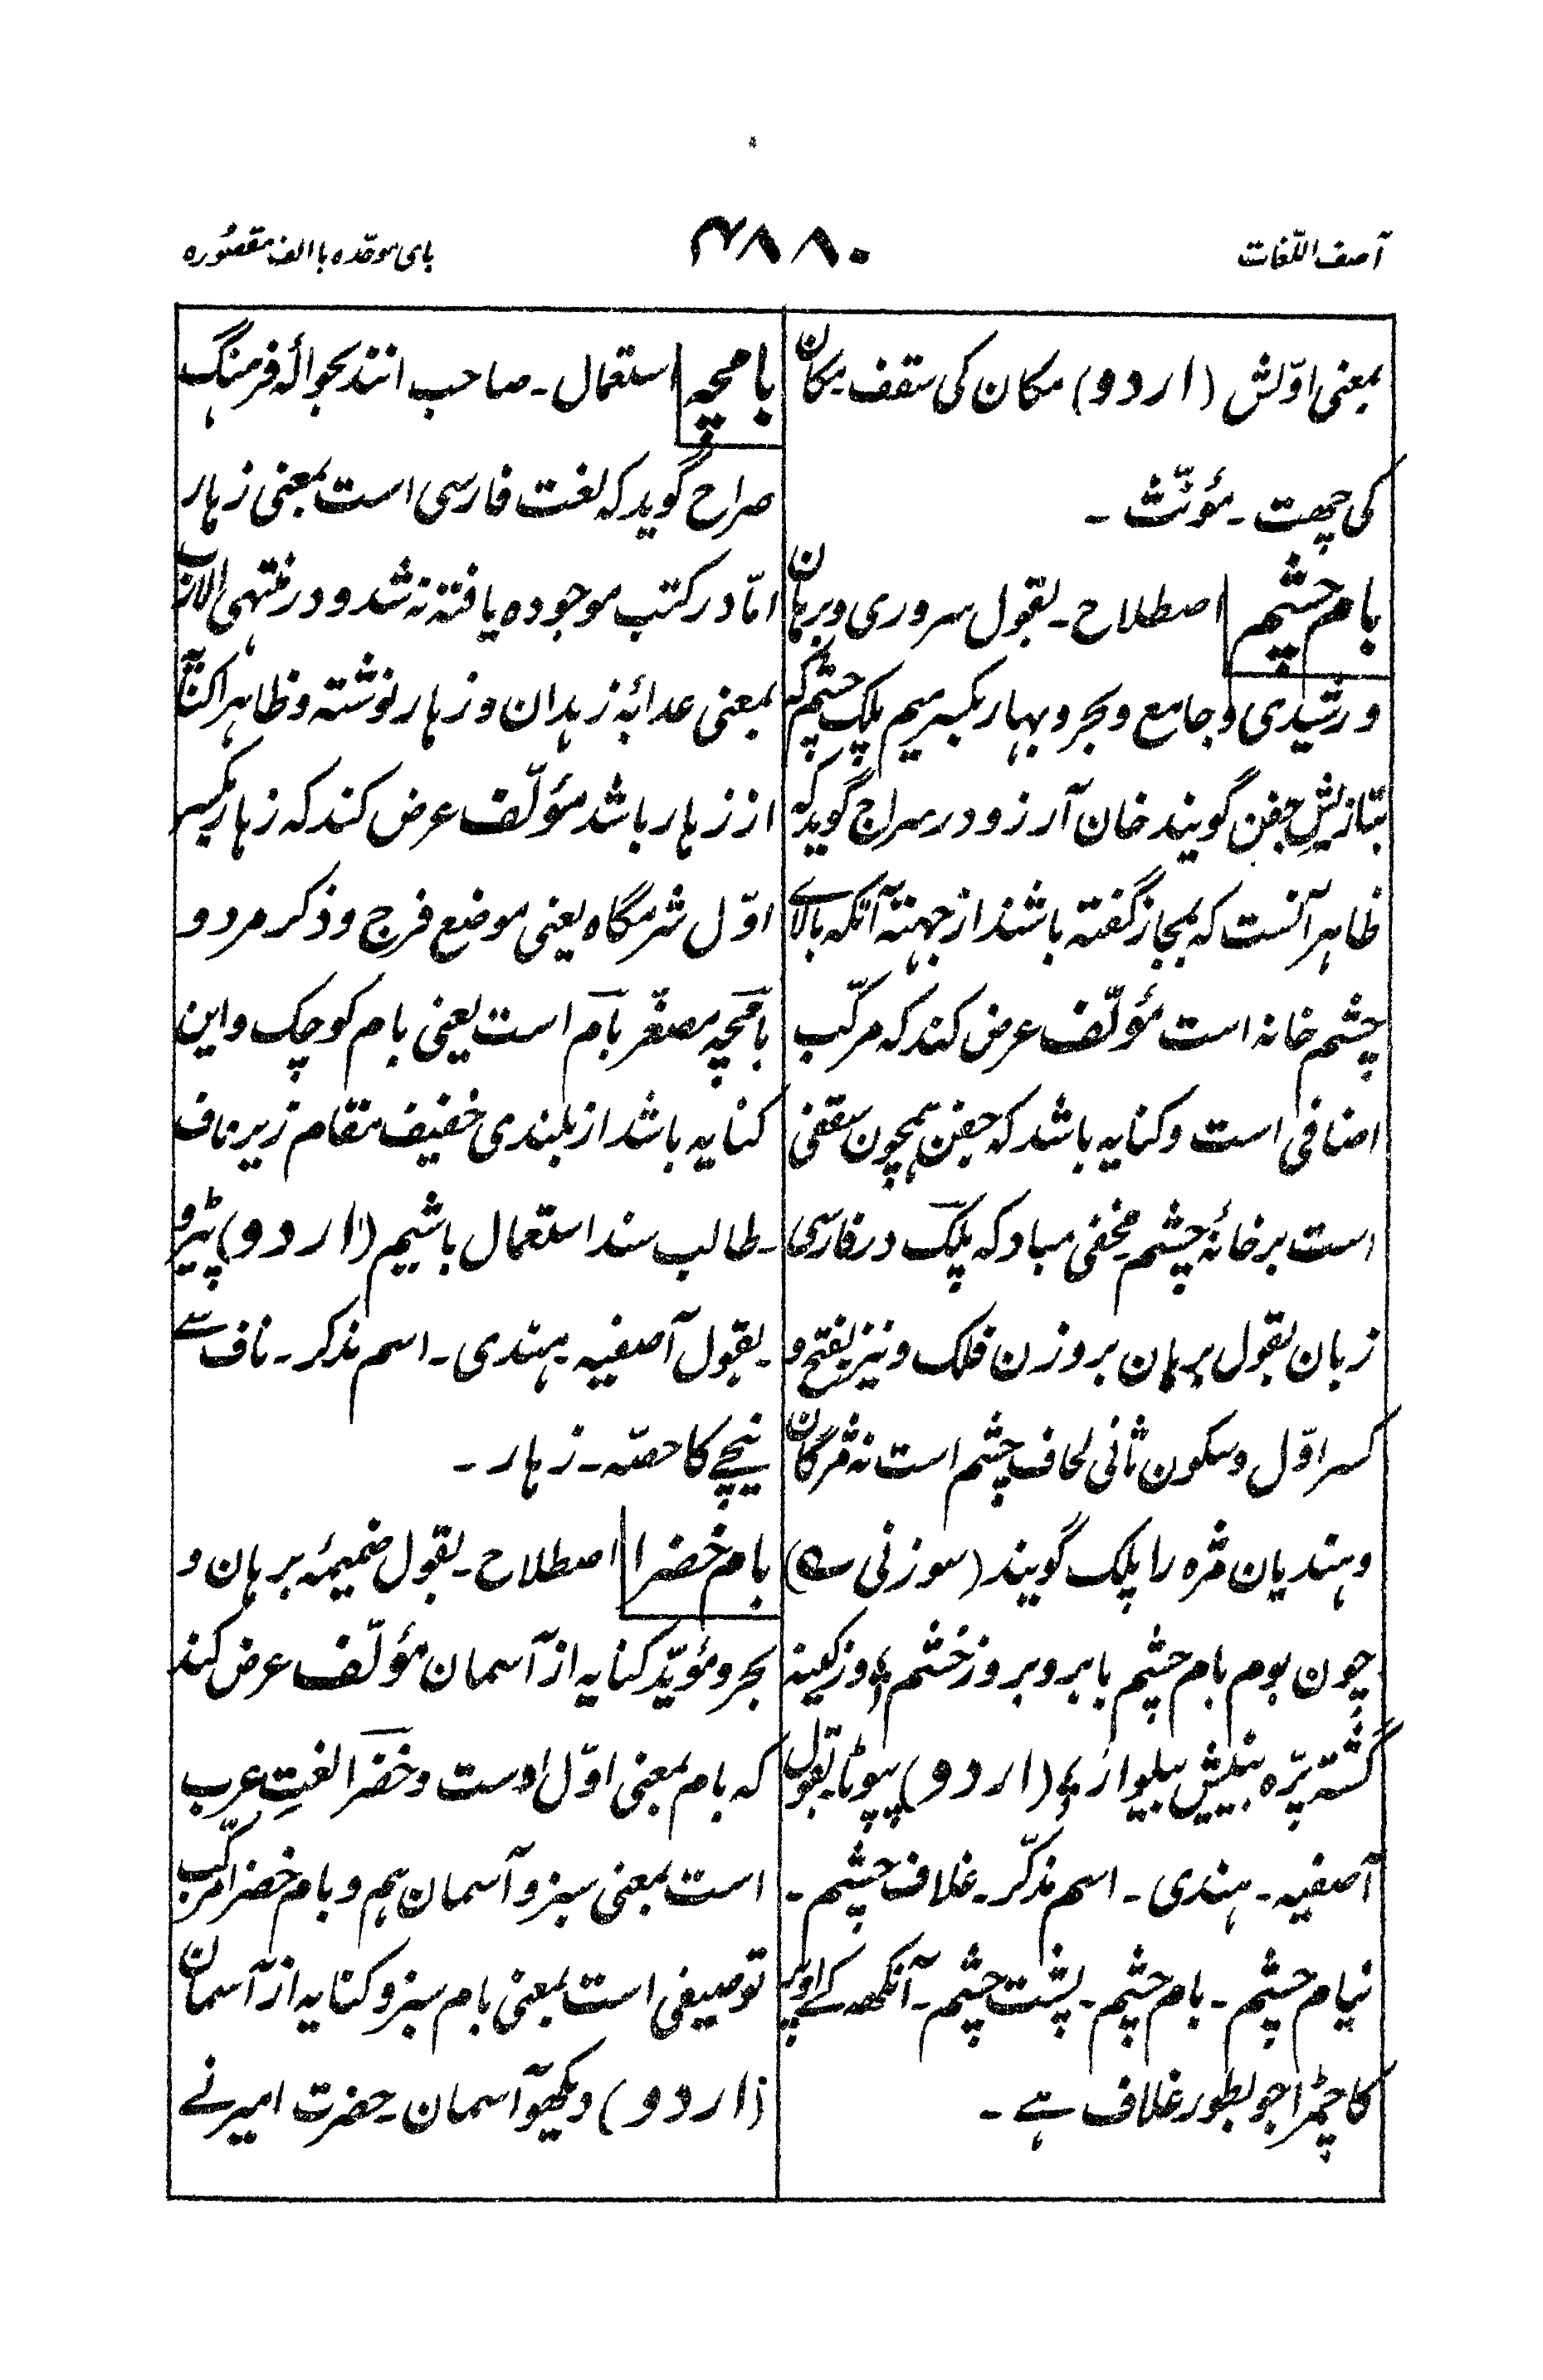 آصف اللّغات
۴۸۸۰
بای موحّده با الف مقصوره
بمعنی اوّلش (اردو) مکان کی سقف۔ مکان
کی چھت۔ مؤنّث۔
بام چشم اصطلاح۔ بقول سروری و برہان
و رشیدی و جامع و بحر و بہار بکسر میم پلک چشم کہ
بتازیش جفن گویند خان آرزو در سراج گوید کہ
ظاہر آنست کہ بمجاز گفتہ باشند از جہتہ آنکہ بالاے
چشم خانہ است مؤلّف عرض کند کہ مرکّب
اضافی است و کنایہ باشد کہ جفن ہمچون سقفی
است بر خانۂ چشم مخفی مباد کہ پلک در فارسی
زبان بقول برہان بروزن فلک و نیز بفتح و
کسر اوّل و سکون ثانی لحاف چشم است نہ مژگان
و ہندیان مژہ را پلک گویند (سوزنی ؎)
چون بوم بام چشم بابرو برو ز خشم ؛ وز کینہ
گشتہ پرّہ بینیش بیلوار ؛ (اردو) پپوٹا بقول
آصفیہ۔ ہندی۔ اسم مذکّر۔ غلاف چشم۔
نیام چشم۔ بام چشم۔ پشت چشم۔ آنکھ کے اوپر
کا چمڑا جو بطور غلاف ہے۔
بامچہ استعمال۔ صاحب انند بحوالۂ فرہنگ
صراح گوید کہ لغت فارسی است بمعنی زہار
امّا در کتب موجودہ یافتہ نہ شد و در منتہی الارب
بمعنی عدابۂ زہدان و زہار نوشتہ و ظاہرا کنایتہ
از زہار باشد مؤلّف عرض کند کہ زہار بکسر
اوّل شرمگاہ یعنی موضع فرج و ذکر مرد و
بامچہ مصغّر بام است یعنی بام کوچک و این
کنایہ باشد از بلندی خفیف مقام زیر ناف
۔طالب سند استعمال باشیم (اردو) پیڑو
۔بقول آصفیہ۔ ہندی۔ اسم مذکر۔ ناف سے
نیچے کا حصّہ۔ زہار۔
بام خضرا اصطلاح۔ بقول ضمیمۂ برہان و
بحر و مؤیّد کنایہ از آسمان مؤلّف عرض کند
کہ بام بمعنی اوّل اوست و خضرا لغتِ عرب
است بمعنی سبز و آسمان ہم و بام خضرا مرکّب
توصیفی است بمعنی بام سبز و کنایہ از آسمان
(اردو) دیکھو آسمان۔ حضرت امیر نے